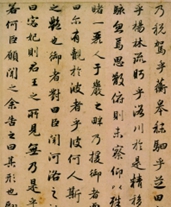 乃税駕乎蘅皋秣駟乎芝田
乎楊林流眄乎洛川於是精移
駭忽焉思散俯則未察仰以殊
睹一麗人于巖之畔乃援御者
曰尔有覿於彼者乎彼何人斯
之艷也御者對曰臣聞河洛之
曰宓妃則君王之所見無乃是乎
若何臣願聞之余告之曰其形也翩